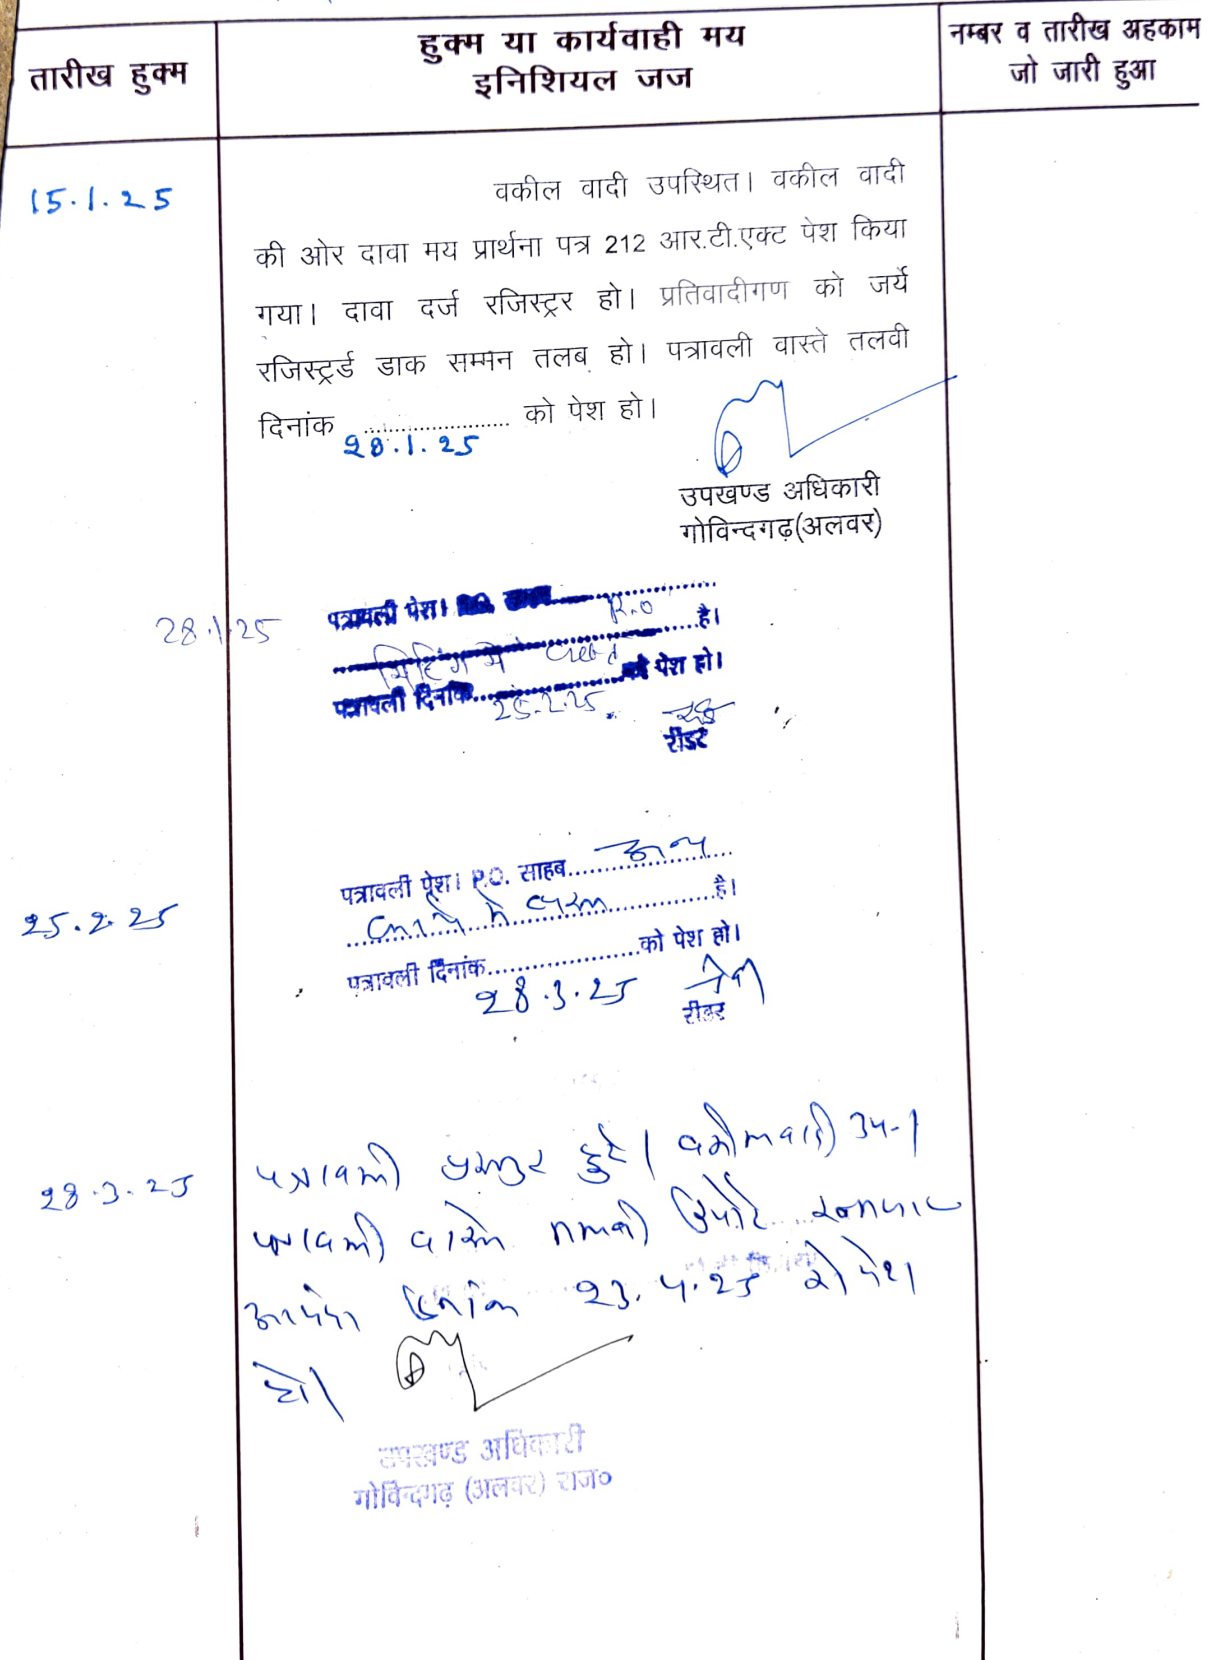 तारीख हुक्म
हुक्म या कार्यवाही मय
इनिशियल जज
नम्बर व तारीख अहकाम
जो जारी हुआ
15.1.25
वकील वादी उपस्थित। वकील वादी
की ओर दावा मय प्रार्थना पत्र 212 आर.टी.एक्ट पेश किया
गया। दावा दर्ज रजिस्ट्रर हो। प्रतिवादीगण को जर्ये
रजिस्ट्रर्ड डाक सम्मन तलब हो। पत्रावली वास्ते तलवी
दिनांक ........................ को पेश हो।
28.1.25
उपखण्ड अधिकारी
गोविन्दगढ़(अलवर)
28.1.25
पत्रावली पेश। P.O
मिटिंग मे व्यस्त है।
पत्रावली दिनांक 25.2.25 को पेश हो।
रीडर
25.2.25
पत्रावली पेश। P.O. साहब अन्य
कार्य मे व्यस्त है।
पत्रावली दिनांक........................को पेश हो।
28.3.25
रीडर
28.3.25
पत्रावली प्रस्तुत हुई। वकील वादी उप.।
पत्रावली वास्ते तलबी रिपोर्ट
दिनांक 23.4.25 को पेश
हो।
उपखण्ड अधिकारी
गोविन्दगढ़ (अलवर) राज०